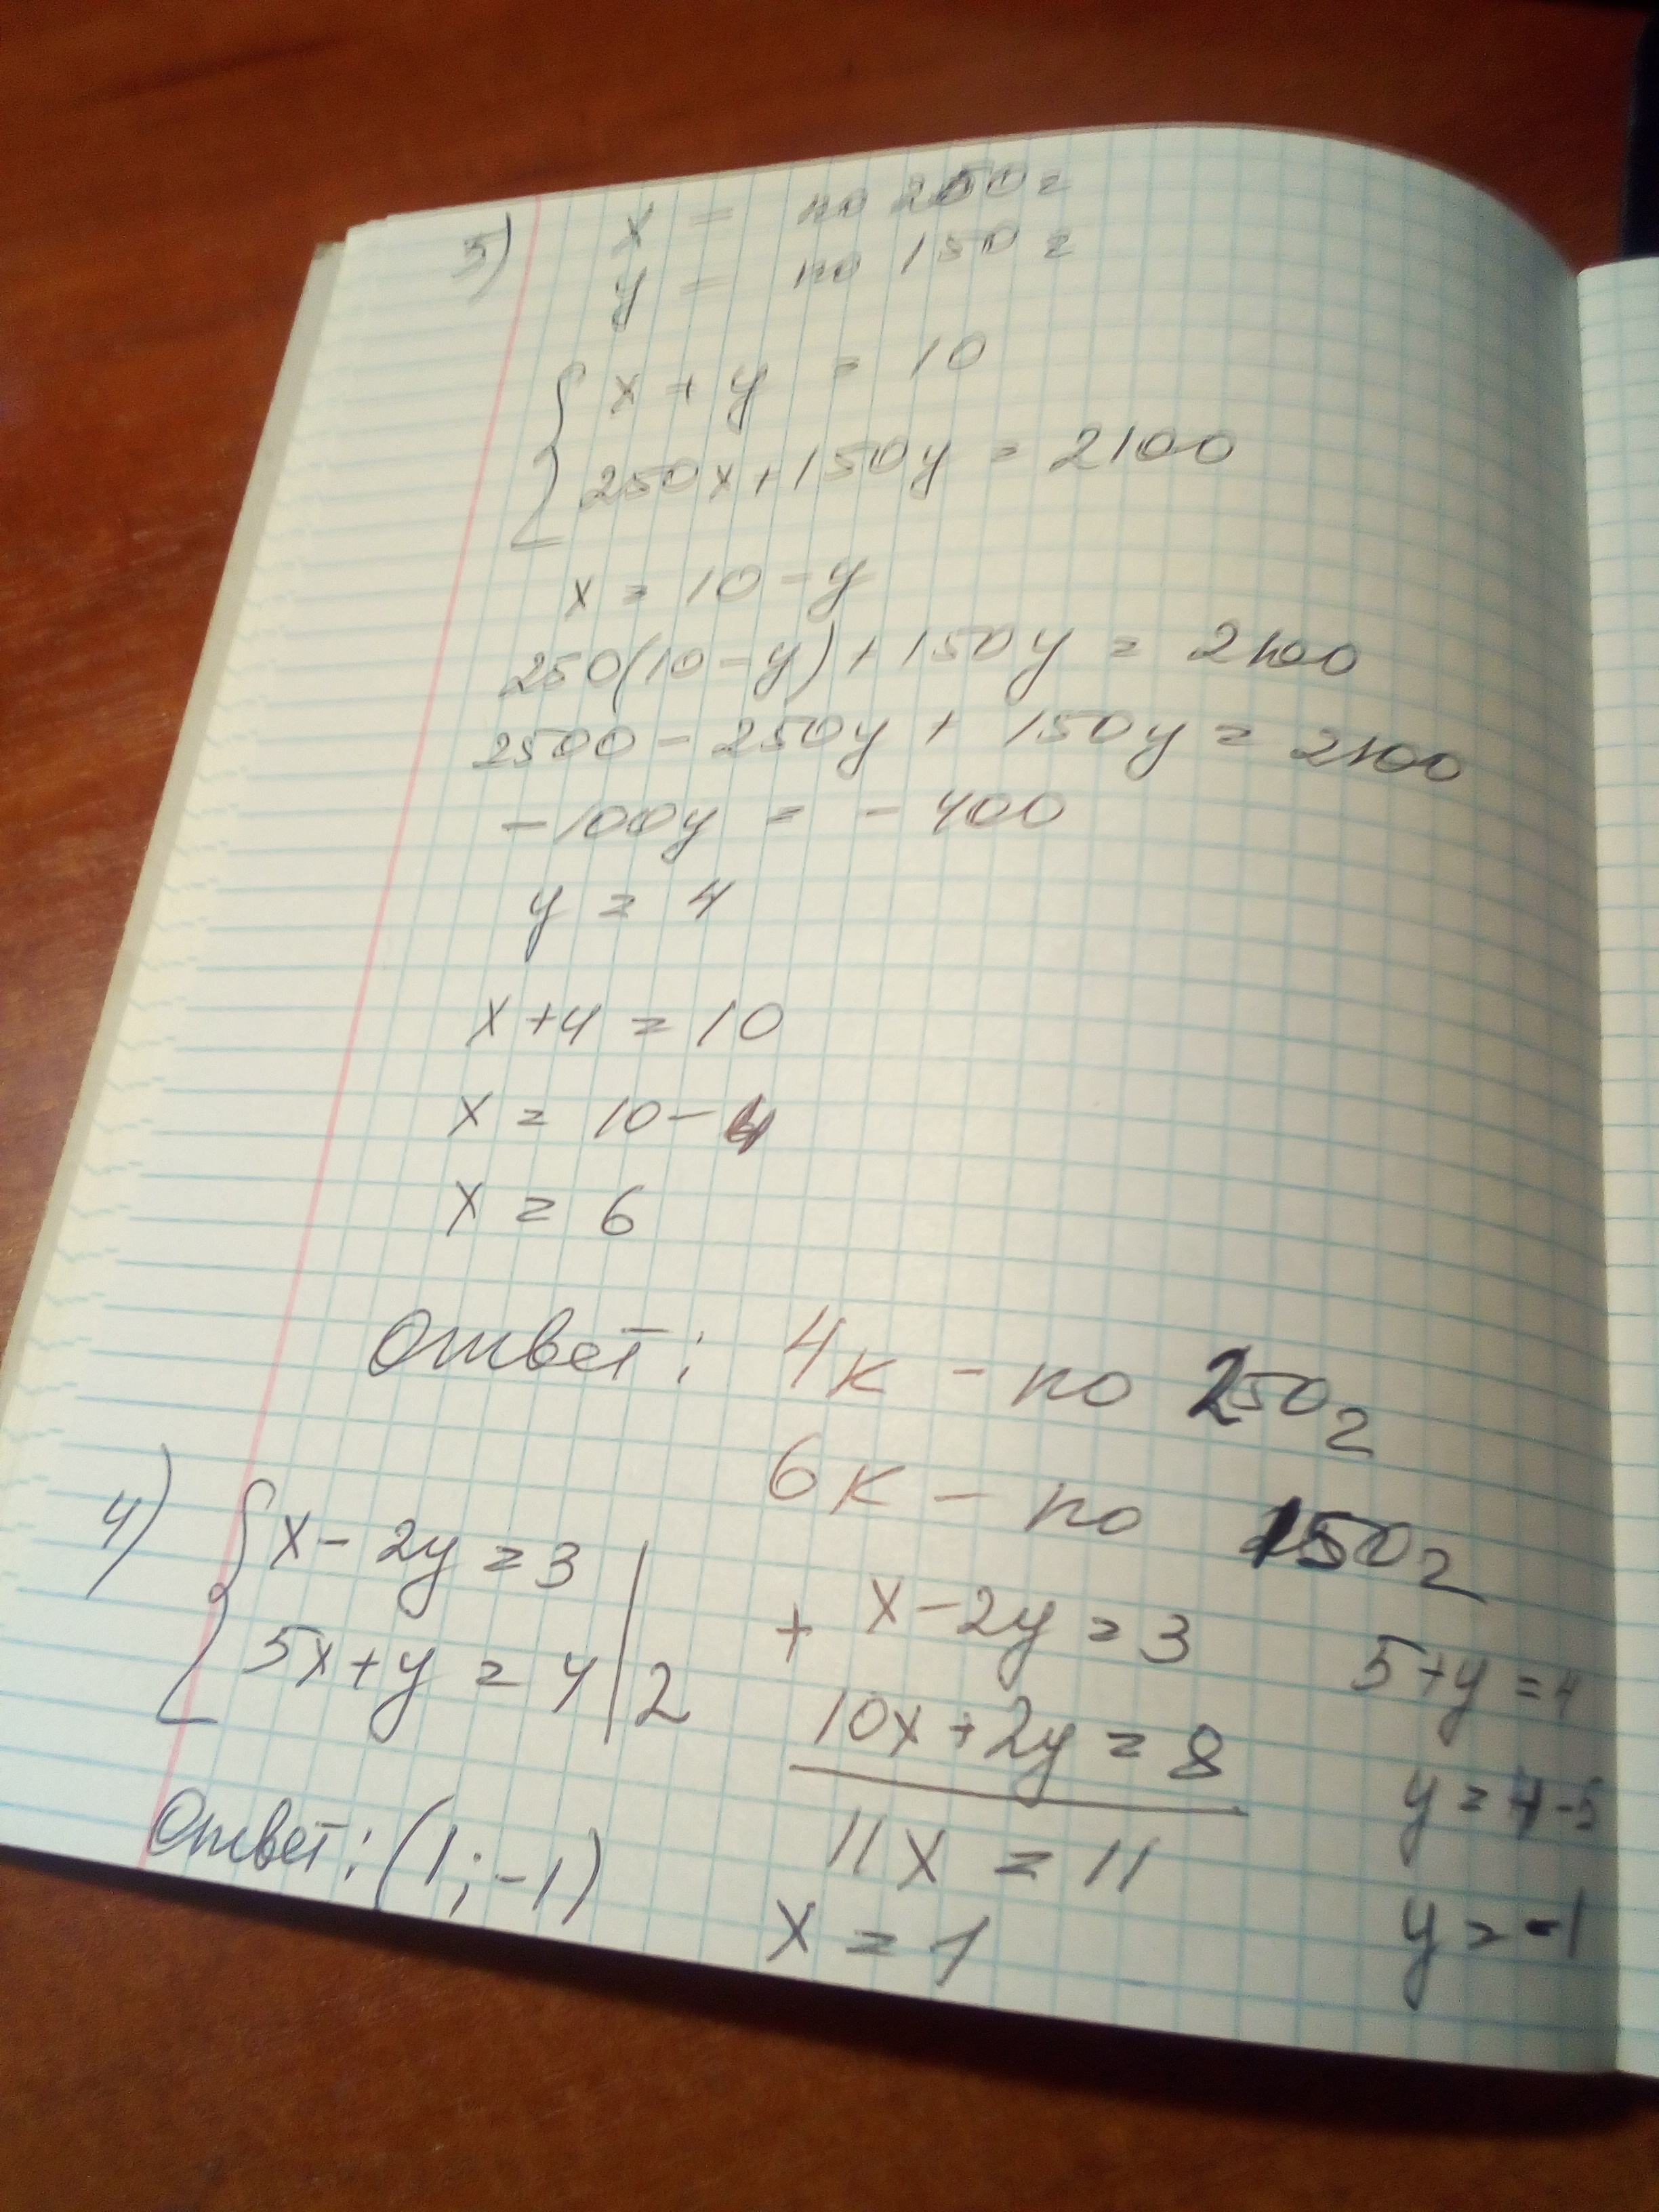 5) x = по 250г
y = по 150г
{ x + y = 10
250x + 150y = 2100
x = 10 - y
250(10 - y) + 150y = 2100
2500 - 250y + 150y = 2100
- 100y = - 400
y = 4
x + 4 = 10
x = 10 - 4
x = 6
Ответ: 4к - по 250г
6к - по 150г
4) { x - 2y = 3
5x + y = 4 | 2
+ x - 2y = 3
10x + 2y = 8
11x = 11
x = 1
5 + y = 4
y = 4 - 5
y = -1
Ответ: (1; -1)